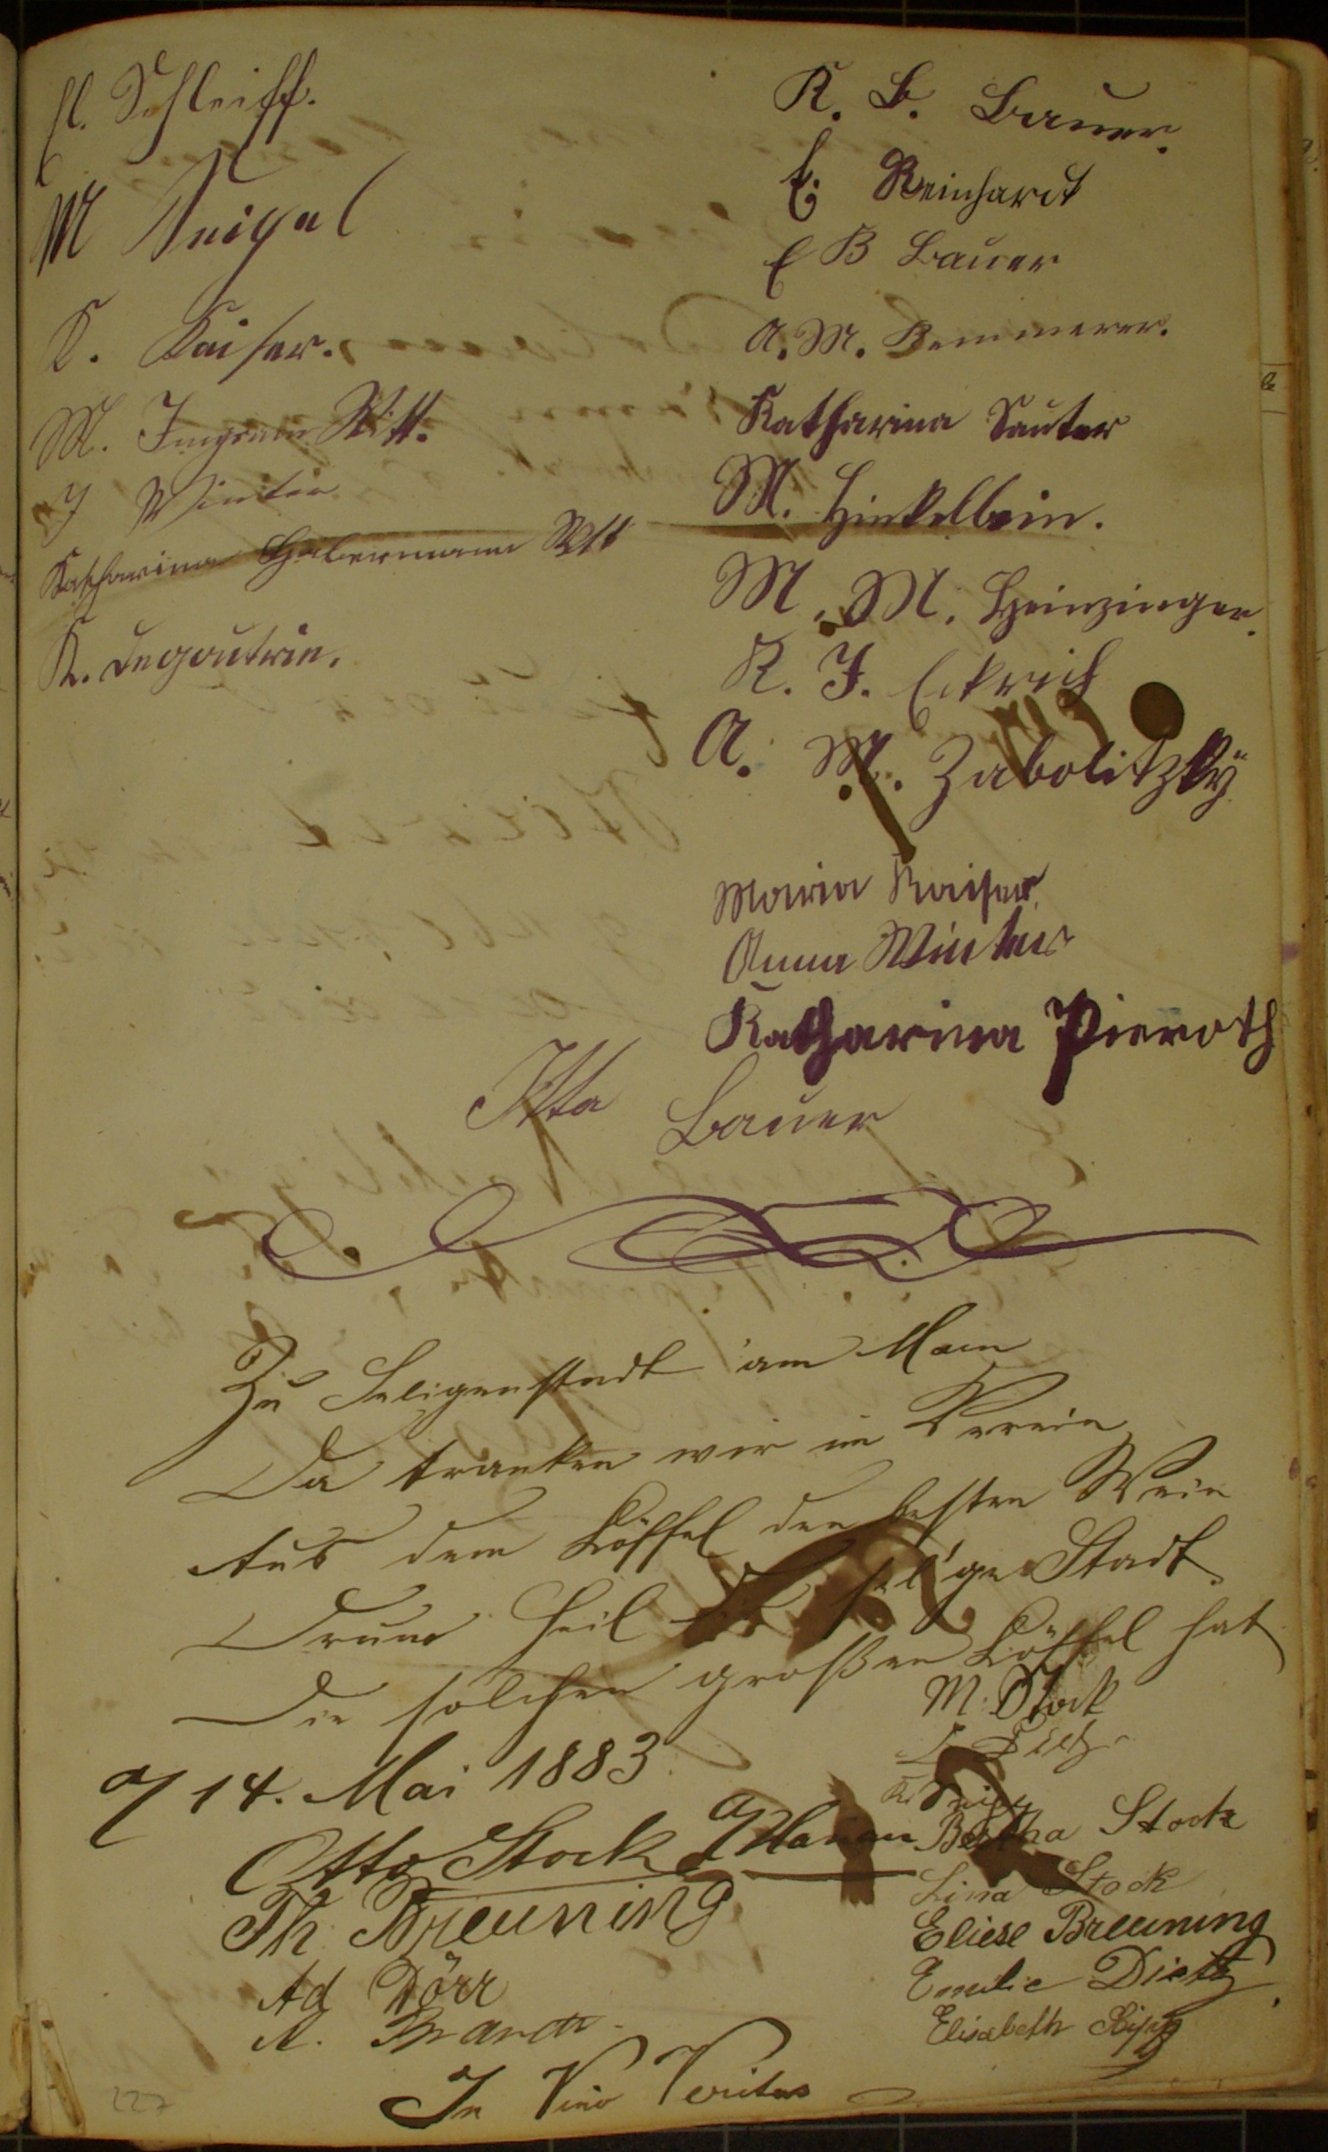 Schleiff.
M
K. Kaiser.
M. Wtt.
J Winter
Katharina Habermann Wtt
K. Degoutrin.
K. B. Bauer.
E. Reinhardt
E B Bauer
A. M. Kemmerer.
Katharina Sauter
M. Hinkelbein.
M. M. Heinzinger.
K. J. Eckrich
A. M. Zabolitzky
Maria Kaiser.
Anna Winter
Katharina Pieroth
Itta Bauer
Zu Seligenstadt am Main
Da tranken wir im Verein
Aus dem Löffel den besten Wein
Drum Heil sel'ge Stadt
Die solchen großen Löffel hat
14. Mai 1883
Otto Stock Hanau
Th. Breuning
Ad Dörr
In Vino Veritas
M. Stock
Bertha Stock
Lina Stock
Eliese Breuning
Emilie Dietz
Elisabeth
127